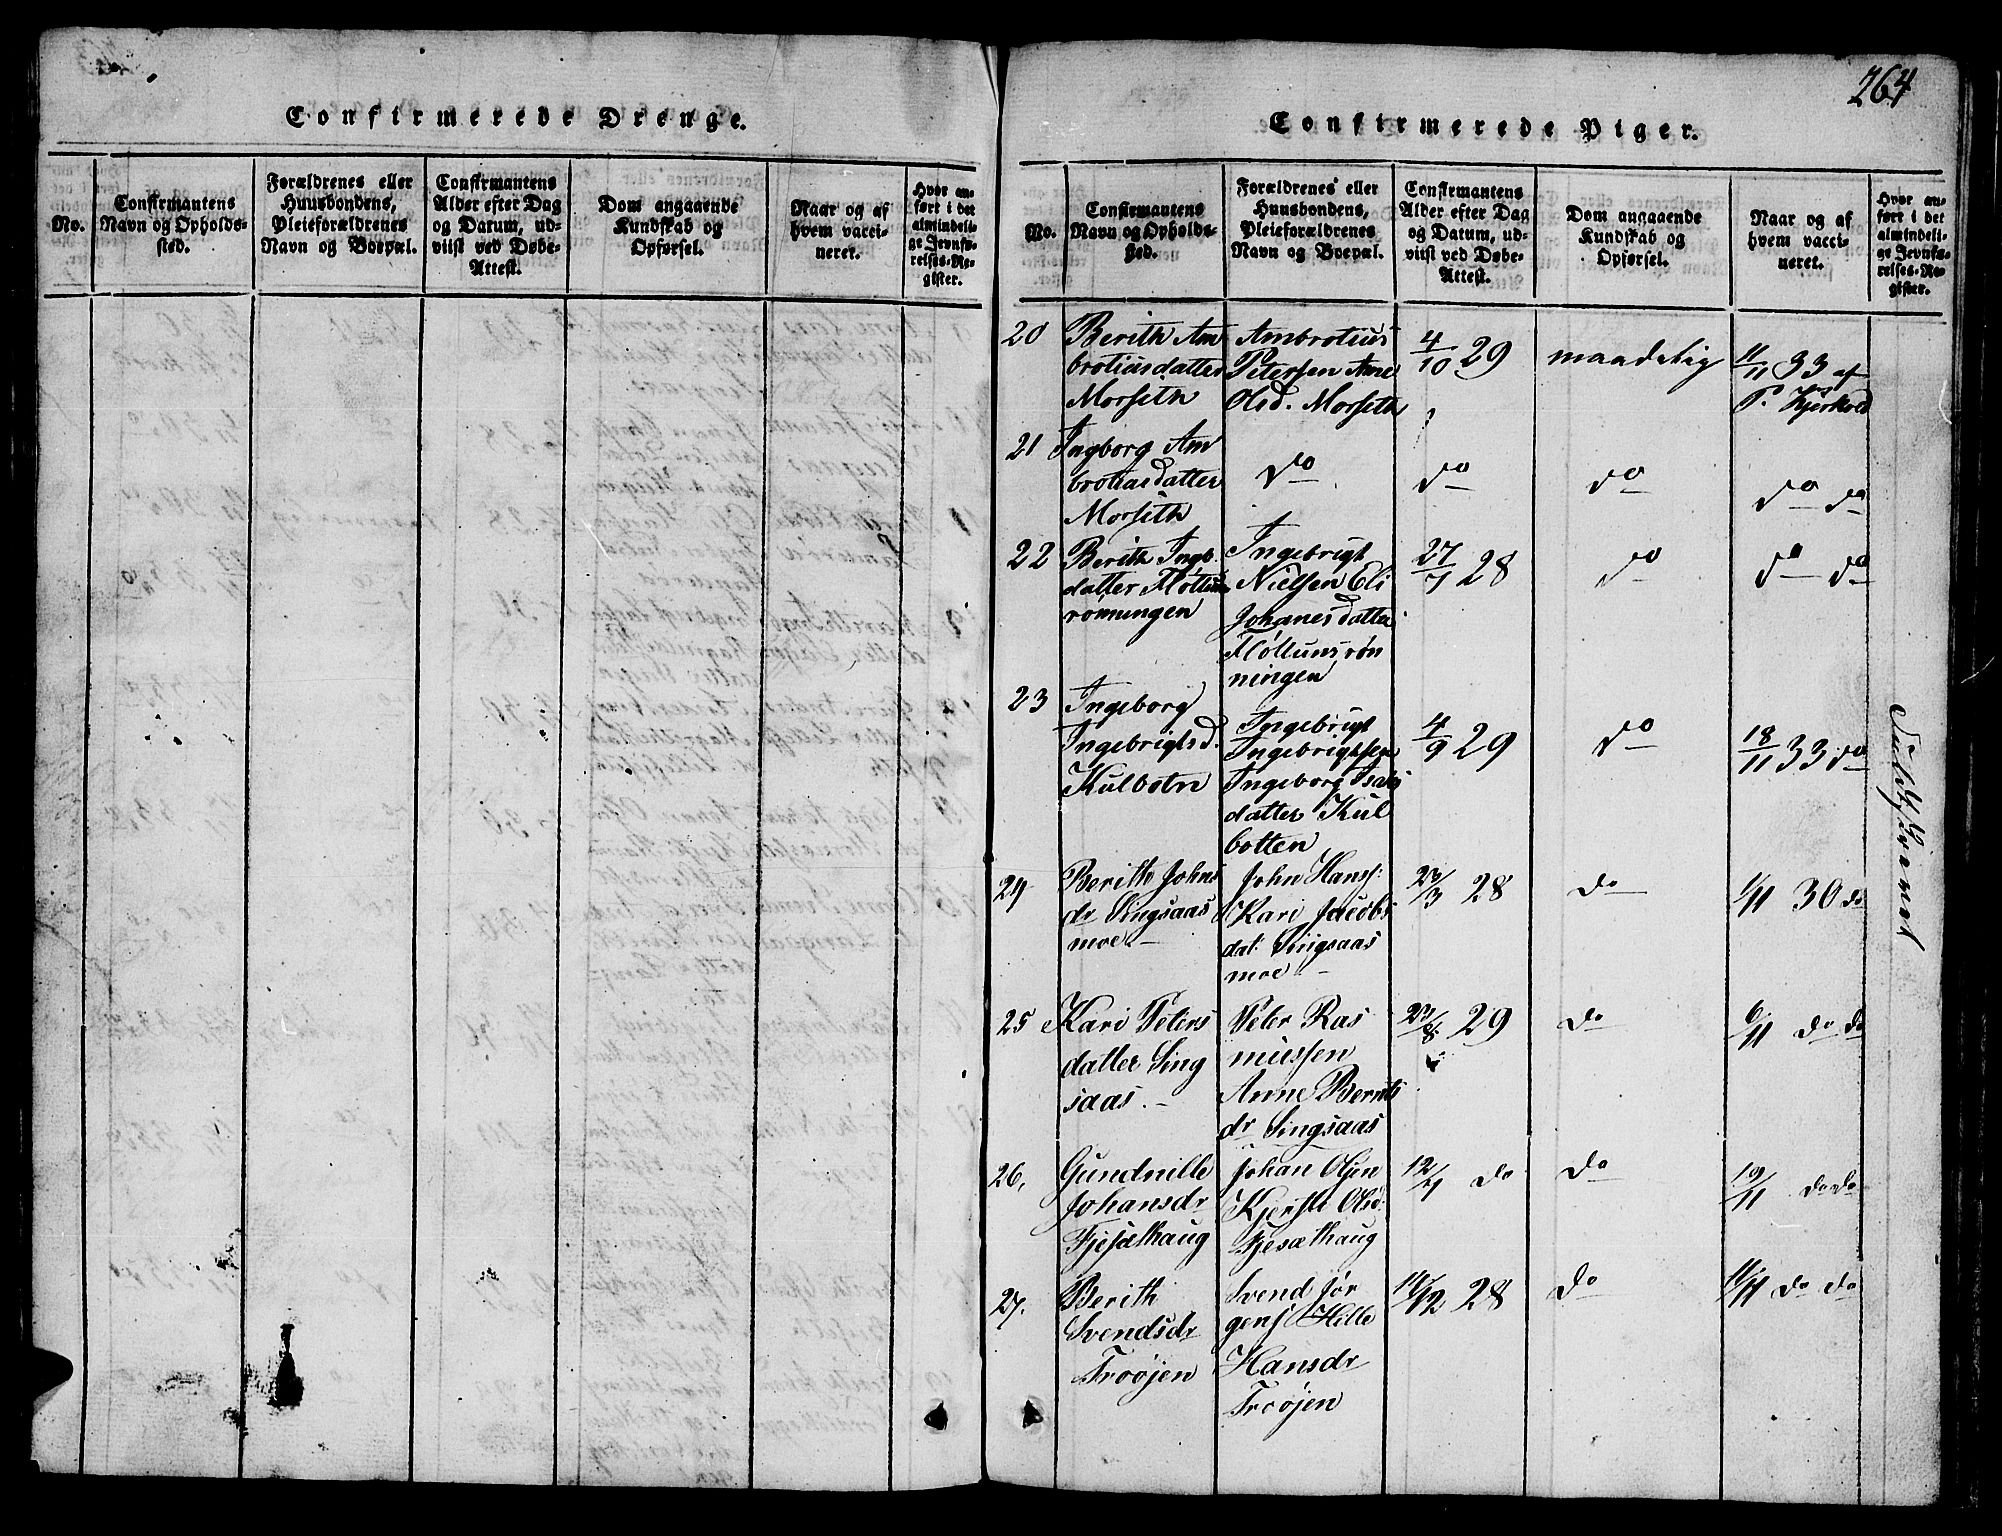 264
Confirmerede Drenge.
No.
Confirmantens
Navn og Opholds-
sted.
Forældrenes eller
Huusbondens,
Pleieforældrenes
Navn og Boepæl.
Confirmantens
Alder efter Dag
og Datum, ud-
viist ved Døbe-
Attest.
Dom angaaende
Kundskab og
Opførsel.
Naar og af
hvem vacci-
neret.
Hvor an-
ført i det
almindeli-
ge Jevnfø-
relses-Re-
gister.
Confirmerede Piger.
No.
Confirmantens
Navn og Opholds-
sted.
Forældrenes eller
Huusbondens,
Pleieforældrenes
Navn og Boepæl.
Confirmantens
Alder efter Dag
og Datum, ud-
viist ved Døbe-
Attest.
Dom angaaende
Kundskab og
Opførsel.
Naar og af
hvem vacci-
neret.
Hvor an-
ført i det
almindeli-
ge Jevnfø-
relses-Re-
gister.
20
Berith Am
brotiusdatter
Morseth
Ambrotius
Petersen Ane
Olsd. Morseth
4/10 29
maadelig
11/11 33 af
P. Kjerkvold
21
Ingborg Am
brotiasdatter
Morseth
do
do
do
do do
22
Berith Ingb.
datter Fløttum
rønningen
Ingebrigt
Nielsen Eli
Johanesdatter
Fløttumsrøn
ningen
27/7 28
do
do do
23
Ingeborg
Ingebrigtsd.
Kulbotn
Ingebrigt
Ingebrigtsen
Ingeborg Isaks
datter Kul
botten
4/9 29
do
18/11 33 do
24
Berith Johns
dr Singsaas
moe
John Hans:
Kari Jacobs
dat: Singsaas
moe
23/3 28
do
1/11 30 do
25
Kari Peters
datter Sing
saas.
Peter Ras
mussen
Anne Bernts
dr Singsaas
23/8 29
do
6/11 do do
26,
Gundnille
Johansdr
Fjesæthaug
Johan Olsen
Kjersti Olsd:
Fjesæthaug
12/4 do
do
10/11 do do
27.
Berith
Svendsdr
Troøjen
Svend Jør
gens Hille
Hansdr
Troøjen
14/12 28
do
11/11 do do